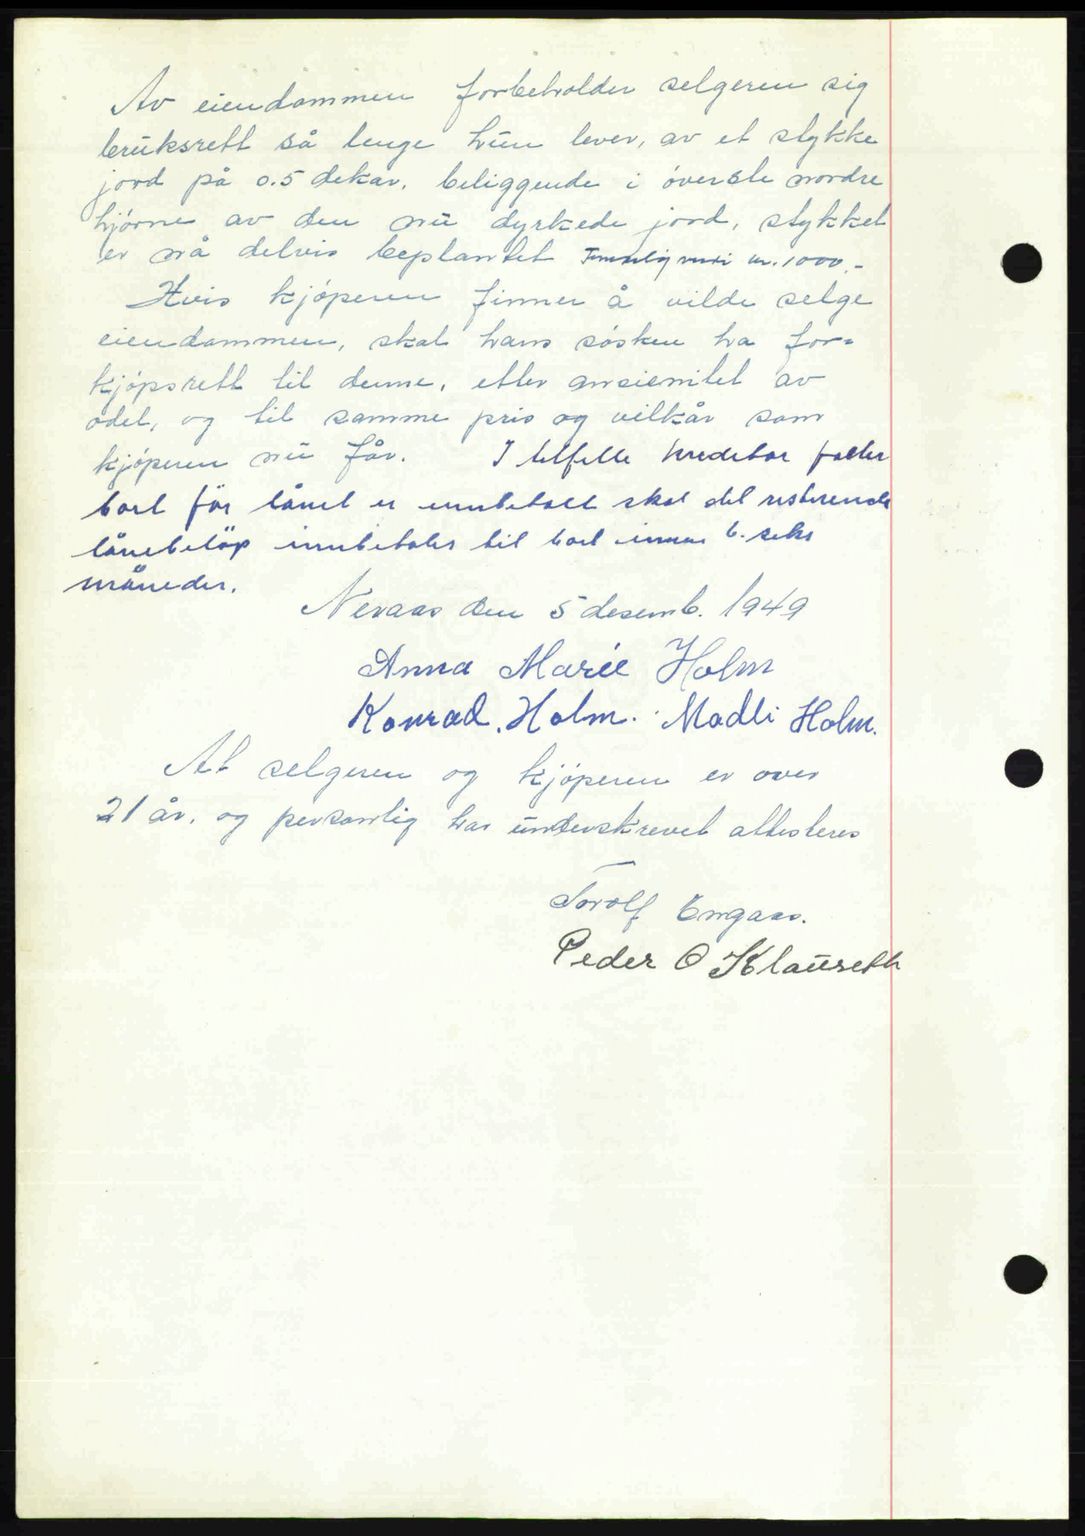 Av eiendommen forbeholder selgeren sig
brüksrett så lenge hün lever, av et stykke
jord på 0.5 dekar, beliggende i överste nordre
hjörne av den nü dyrkede jord, stykket
er nå delvis beplantet kr. 1000,-
Hvis kjöperen finner å vilde selge
eiendommen, skal hans sösken ha for-
kjöpsrett til denne, etter ansienitet av
odel, og til samme pris og vilkår som
kjöperen nü får. I tilfelle kreditor faller
bort för lånet er innbetalt skal det resterende
lånebelöp innbetales til boet innen 6. seks
måneder.
Neraas den 5 desemb. 1949
Anna Marie Holm
Konrad Holm. Modli Holm.
At selgeren og kjöperen er over
21 år, og personlig har ünderskrevet attesteres
Torolf Engaas.
Peder O Klaüseth